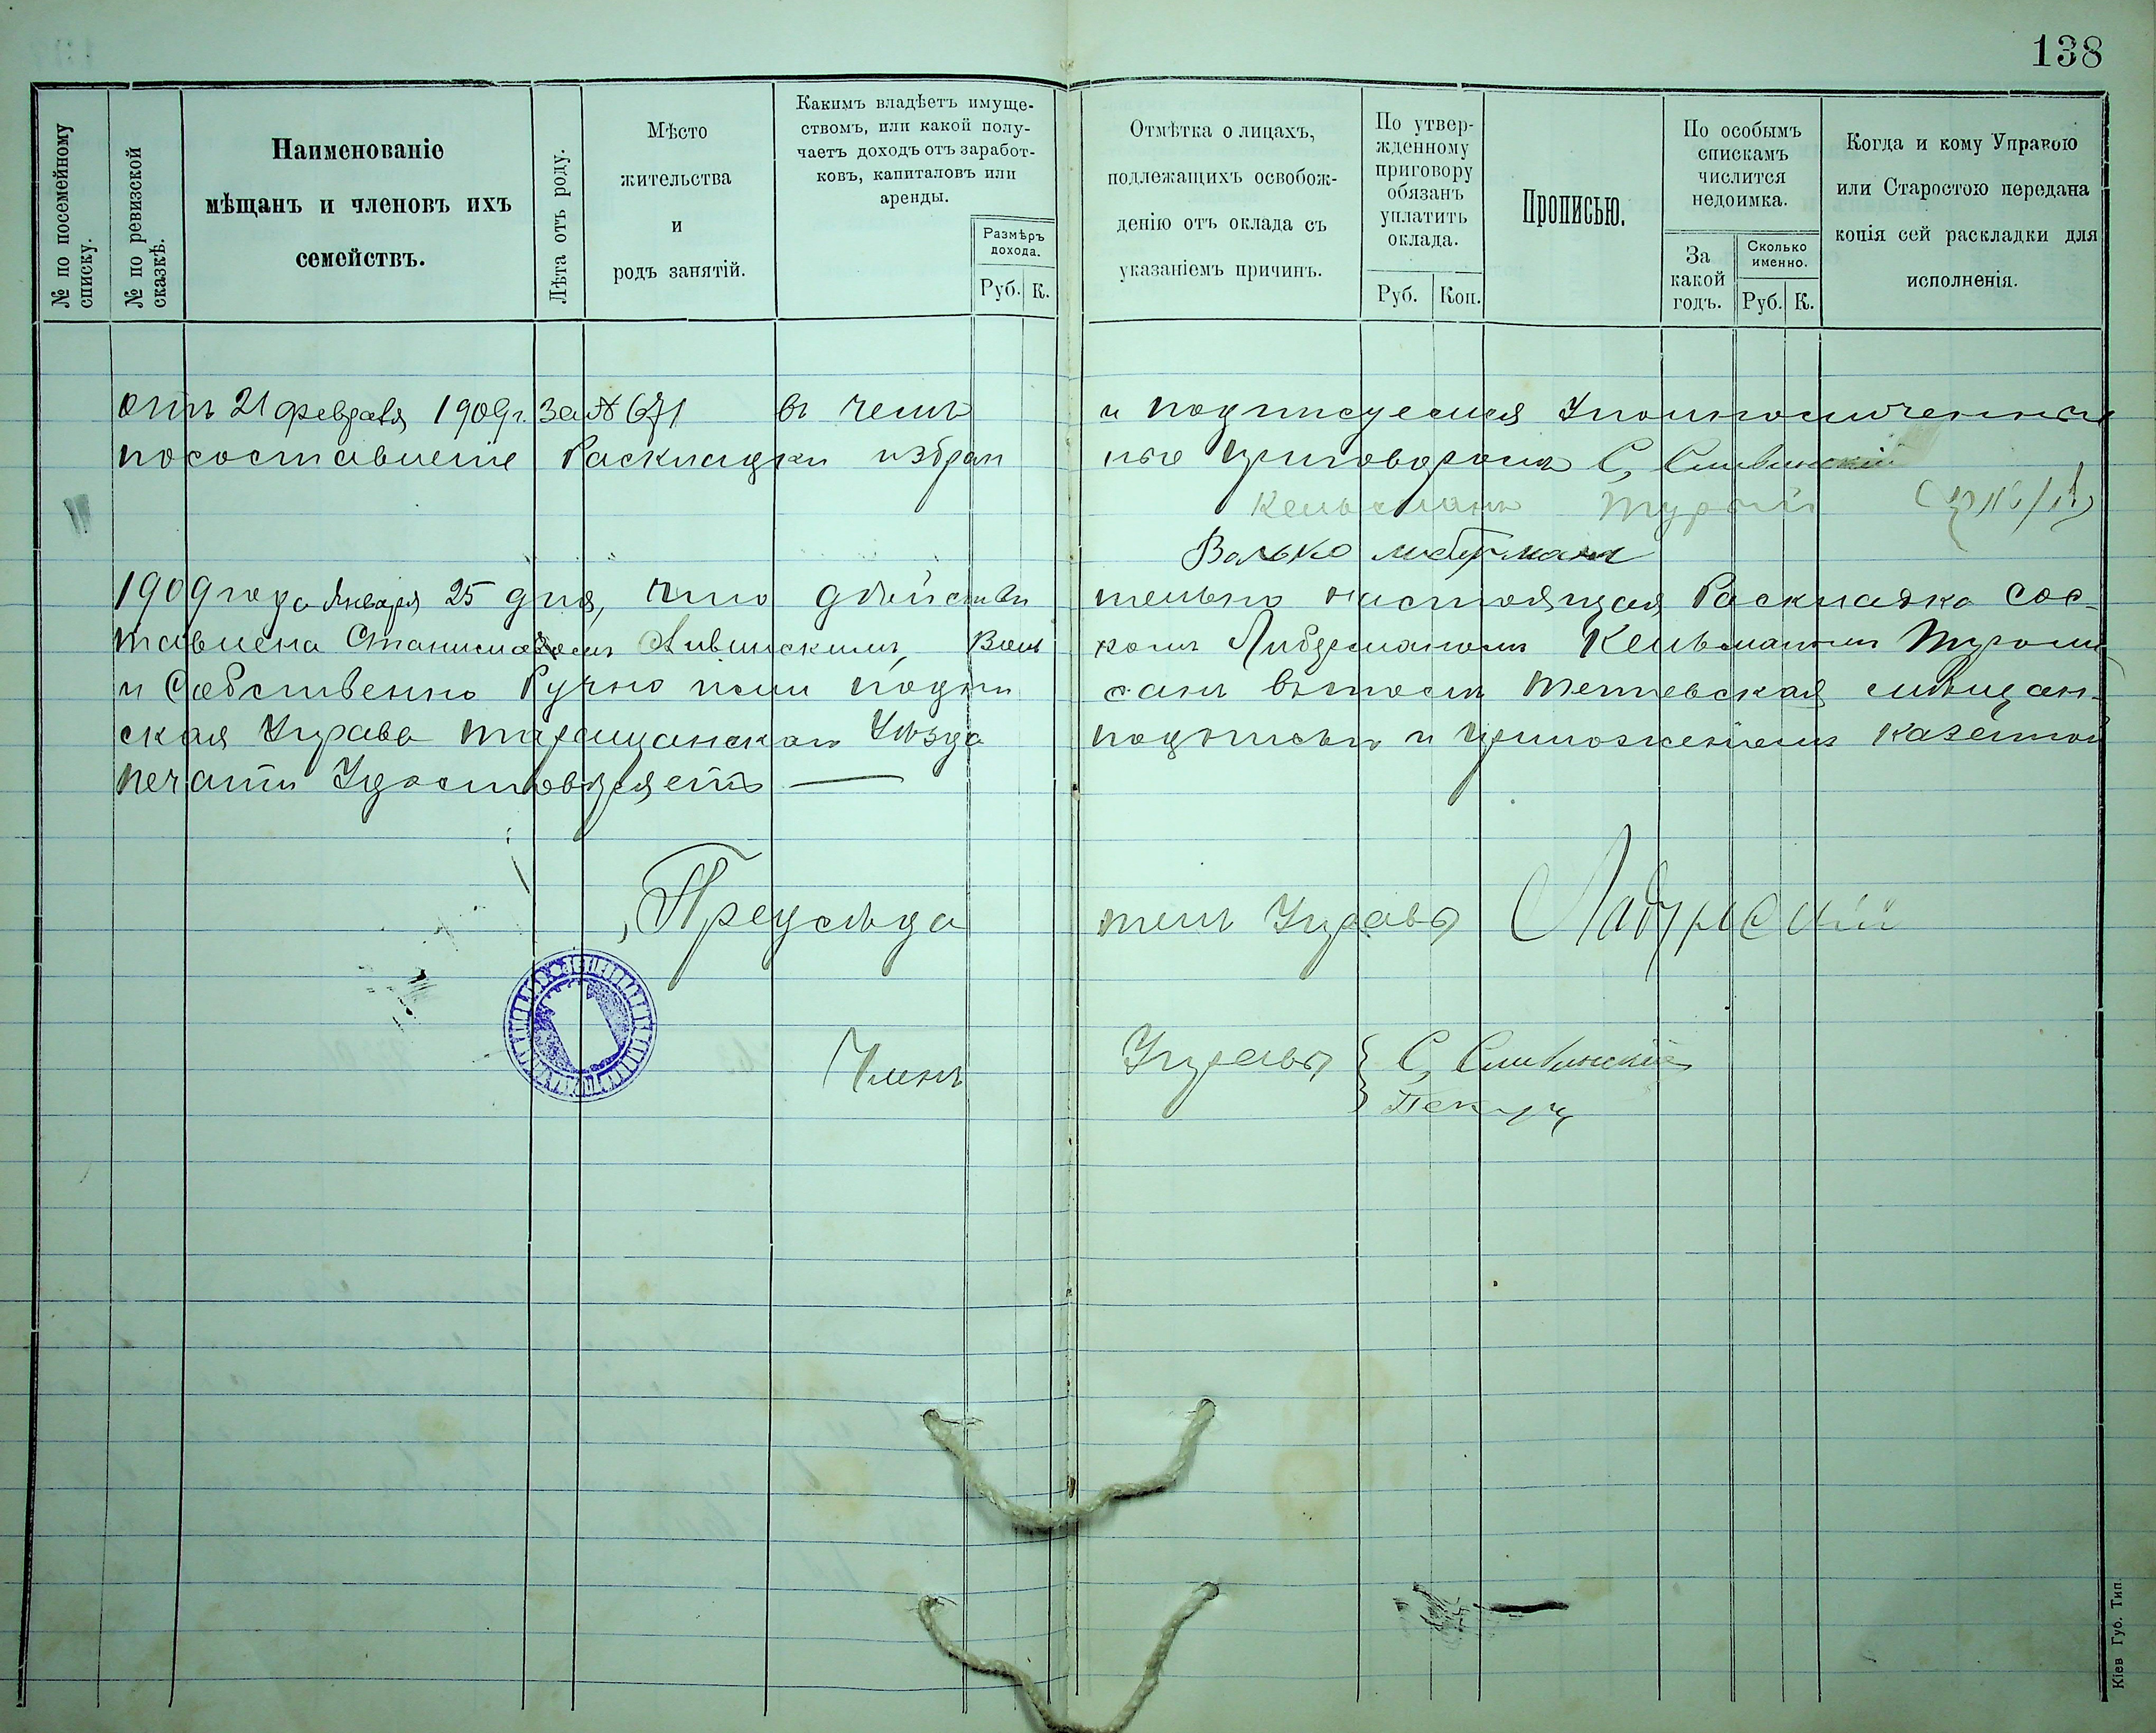 138
№ по посемейному списку.
№ по ревизской сказкѣ.
Наименованіе
мѣщанъ и членовъ ихъ
семействъ.
Лѣта отъ роду.
Мѣсто
жительства
и
родъ занятій.
Какимъ владѣетъ имуще-
ствомъ, или какой полу-
чаетъ доходъ отъ заработ-
ковъ, капиталовъ или
аренды.
Размѣръ
дохода.
Руб. К.
Отмѣтка о лицахъ,
подлежащихъ освобож-
денію отъ оклада съ
указаніемъ причинъ.
По утвер-
жденному
приговору
обязанъ
уплатить
оклада.
Руб. Коп.
Прописью.
По особымъ
спискамъ
числится
недоимка.
За
какой
годъ.
Сколько
именно.
Руб. К.
Когда и кому Управою
или Старостою передана
копія сей раскладки для
исполненія.
отъ 21 февраля 1909г. за № 671 въ чемъ и подписуемся Уполномоченны
посоставленіе Раскладки избран ные приговоромъ С, Сливинскій
Кельманъ Турый
Валько либерман
1909 года Января 25 дня, что дѣйстви тельно настоящая Раскладка Сос-
тавлена Станиславомъ Сливинскимъ, Воль комъ Либерманомъ Кельманомъ Турымъ
и Собственно Ручно ими подпи санъ вътомъ Тетіевская мѣщан-
ская Управа Таращанскаго Уѣзда подписью и приложеніемъ казенной
печати Удостовѣряетъ
Предсѣда тель Управы
Членъ Управы С, Сливинскій
Кіев Губ. Тип.